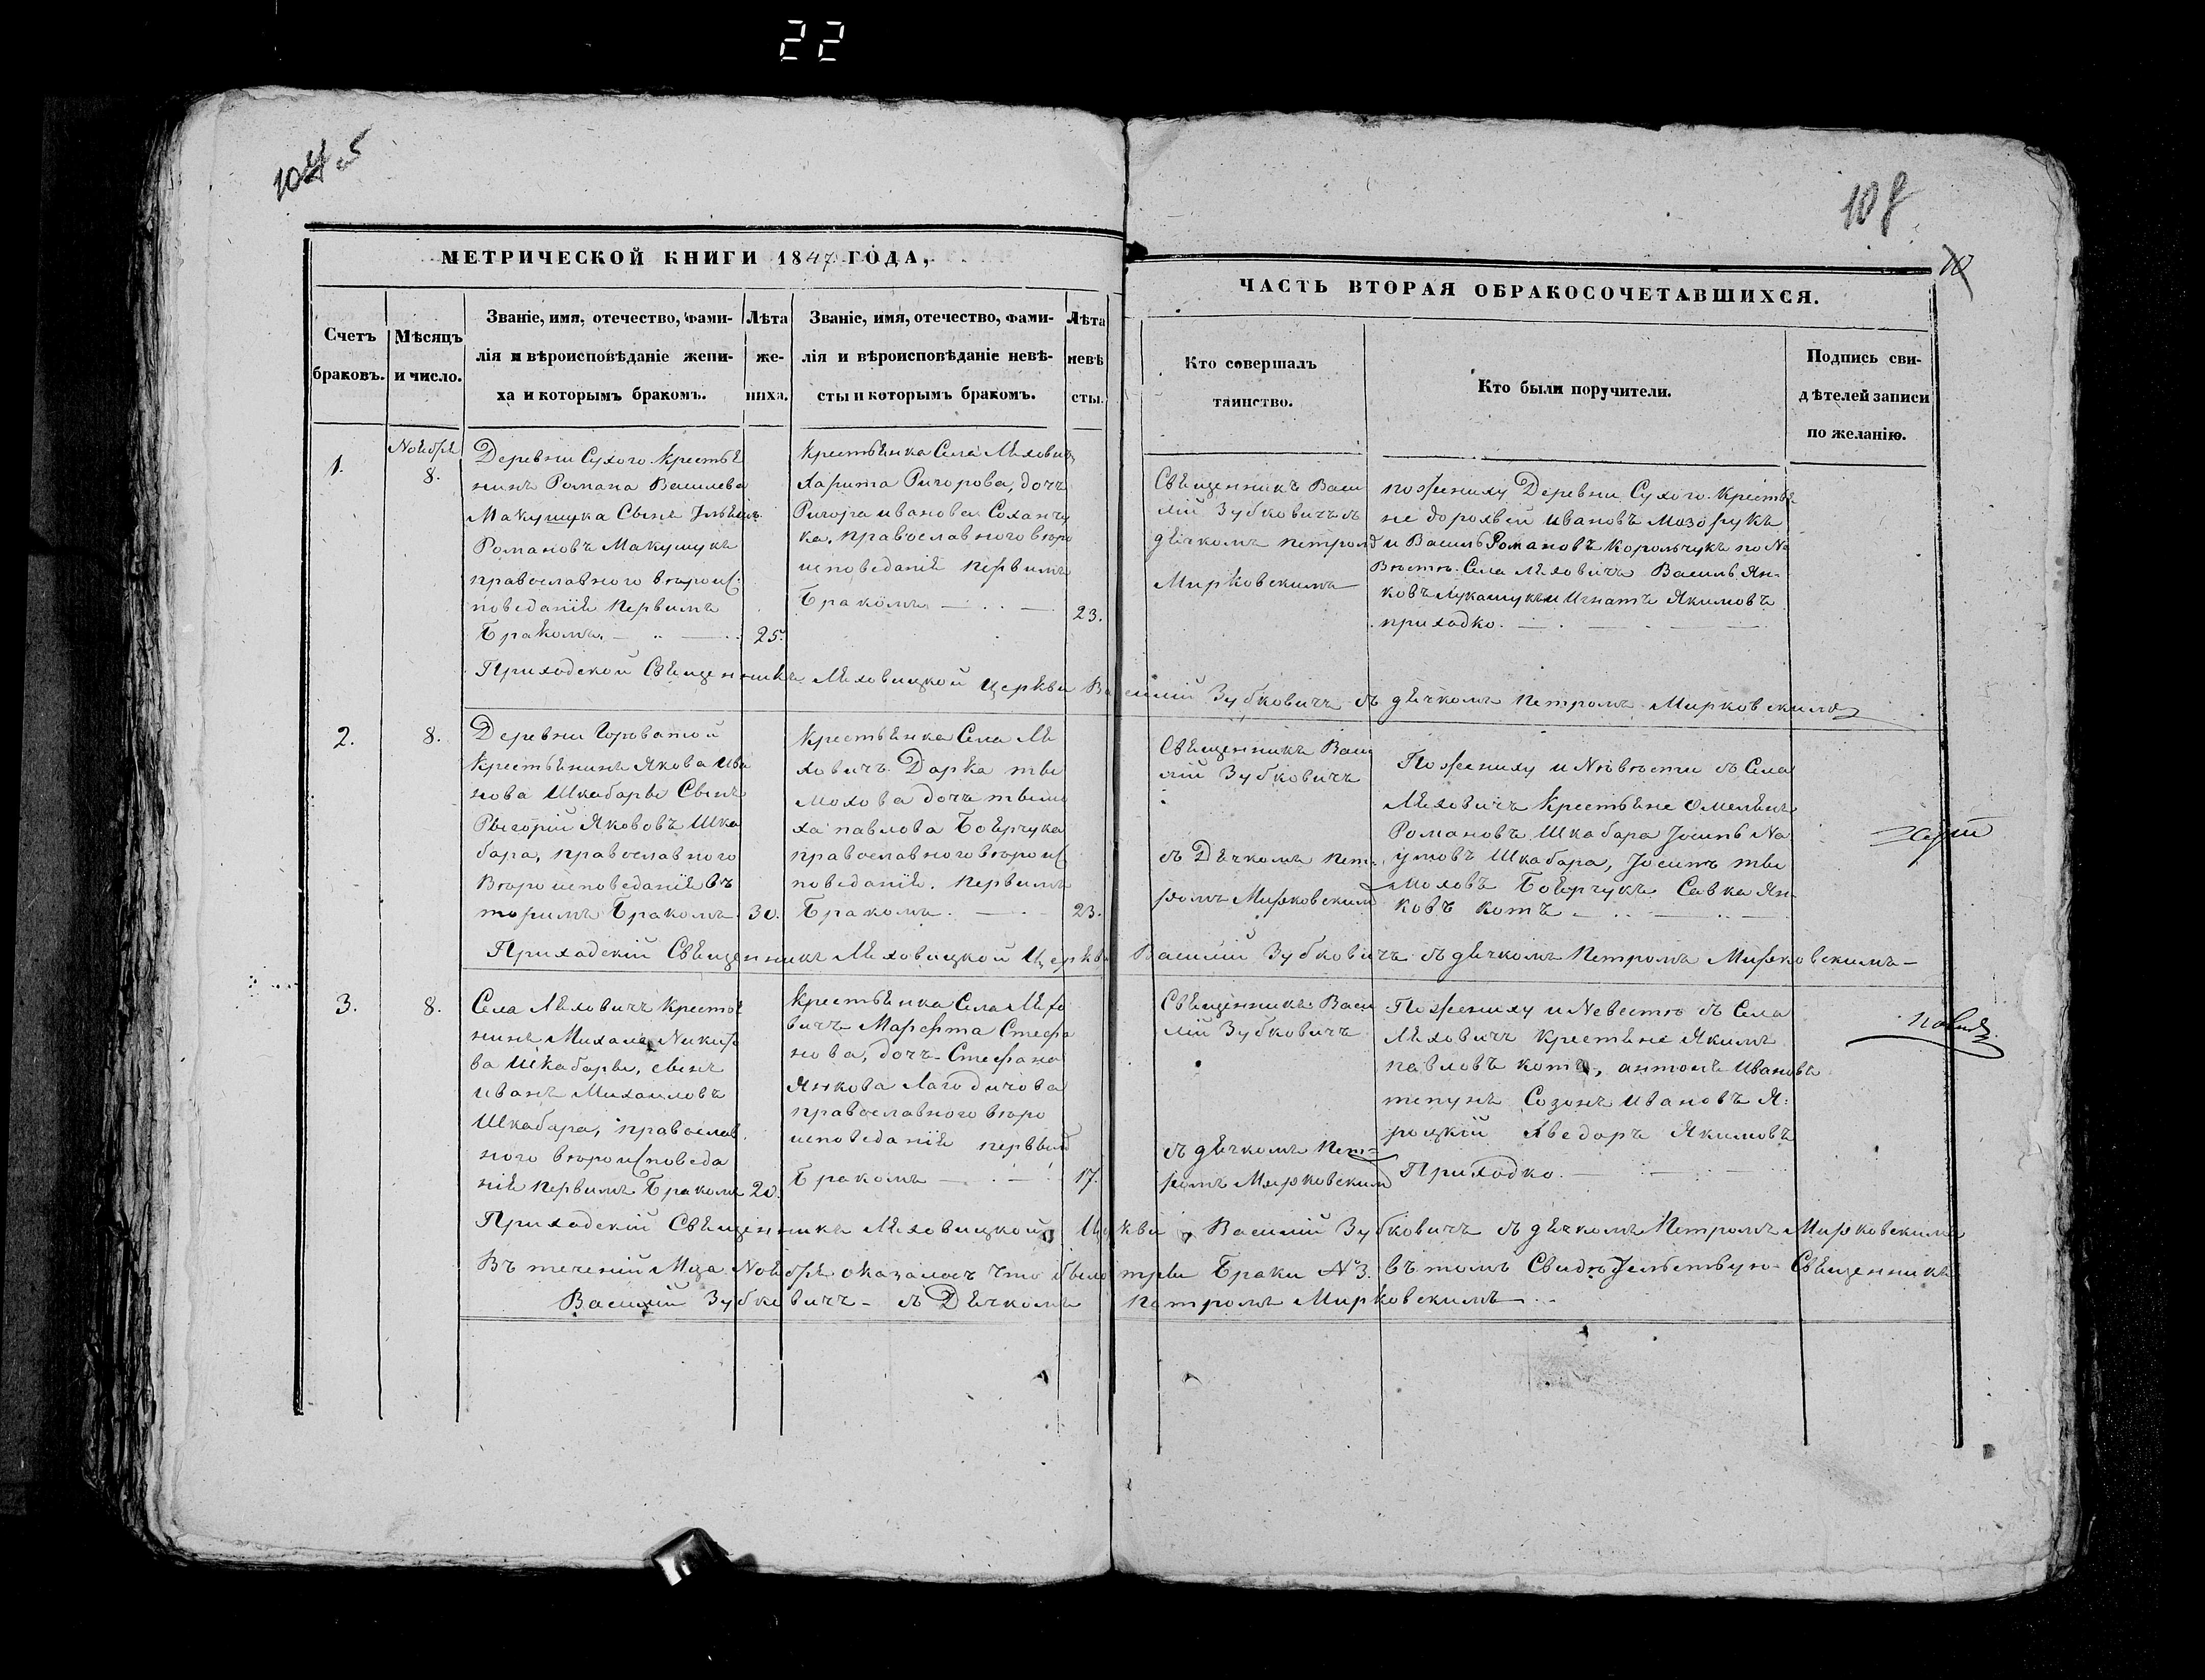 22
108
10
МЕТРИЧЕСКОЙ КНИГИ 1847 ГОДА,
ЧАСТЬ ВТОРАЯ ОБРАКОСОЧЕТАВШИХСЯ.
Счетъ
браковъ.
Мѣсяцъ
и число.
Званіе, имя, отечество, фами-
лія и вѣроисповѣданіе жени-
ха и которымъ бракомъ.
Лѣта
же-
ниха.
Званіе, имя, отечество, фами-
лія и вѣроисповѣданіе невѣ-
сты и которымъ бракомъ.
Лѣта
невѣ
сты.
Кто совершалъ
таинство.
Кто были поручители.
Подпись сви-
дѣтелей записи
по желанію.
1.
Ноѣбрѣ
8.
Деревни Сухого Крестьѣ
нинъ Романа Василева
Макушука Сынъ
Романовъ Макушукъ
православного вѣроис
поведаніѣ Первымъ
Бракомъ.
25.
Крестьѣнка Села Лѣхович
Харита Ригорова, дочъ
Ригора иванова
ка, православного вѣро
исповеданіѣ первымъ
Бракомъ
23.
Свѣщенникъ Васи
лій Зубковичъ съ
дѣчкомъ петром
Мирковскимъ
по жениху Деревни Сухого Крестьѣ
не дорофей Ивановъ Мозорукъ
и Василь Романовъ Корольчукъ по Не
Вѣстѣ Села Лѣховичъ Василь Ян-
ковъ Лукашукъ и Игнатъ Якимовъ
приходко.
Приходской Свѣщенникъ Лѣховицкой Церкви Василій Зубковичъ съ дѣчкомъ Петромъ Мирковскимъ
2.
8.
Деревни Гороватой
Крестьѣнинъ Якова Ива
нова Шкабары Сынъ
Рыгорій Якововъ Шка
бара, православного
Вѣроисповеданіѣ въ
торимъ Бракомъ
30.
Крестьѣнка Села Лѣ
ховичъ Дарка ты
мохова дочъ тымо
ха павлова Боѣрчука
православного вѣроис
поведаніѣ. Первымъ
Бракомъ.
23.
Свѣщенникъ Васи
лій Зубковичъ
съ Дѣчкомъ Пет-
ромъ Мирковским
По жениху и Невѣсти съ Села
Лѣховичъ Крестьѣне Омелѣнъ
Романовъ Шкабара Josипъ На
умовъ Шкабара, Josипъ ты
моховъ Боѣрчукъ Савка Ян
ковъ котъ
Приходскій Свѣщенникъ Лѣховицкой Церкви Василій Зубковичъ съ дѣчкомъ Петромъ Мирковскимъ
3.
8.
Села Лѣховичъ Крестьѣ
нинъ Михала Никифо
ва Шкабары, сынъ
иванъ Михаиловъ
Шкабара, православ
ного вѣроисповеда
ніѣ Первымъ Бракомъ
20.
Крестьѣнка Села Лѣхо
вичъ Марфта Стефа
нова, дочъ Стефана
Янкова Лагодичова
православного вѣро
исповеданіѣ первым
Бракомъ
17.
Свѣщенникъ Васи
лій Зубковичъ
съ дѣчкомъ Пет-
ромъ Мирковским
По жениху и Невестѣ съ Села
Лѣховичъ Крестьѣне Якимъ
павловъ котъ, антонъ Ивановъ
тепунъ Созонъ Ивановъ Я
роцкой Хведоръ Якимовъ
Приходко.
Приходскій Свѣщенникъ Лѣховицкой Церкви Василій Зубковичъ съ дѣчкомъ Петромъ Мирковскимъ
Въ теченіи Мца Ноѣбрѣ оказалось что было тры Браки №3. въ томъ Свидѣтельствую Свѣщенникъ
Василій Зубковичъ съ Дѣчкомъ Петромъ Мирковскимъ